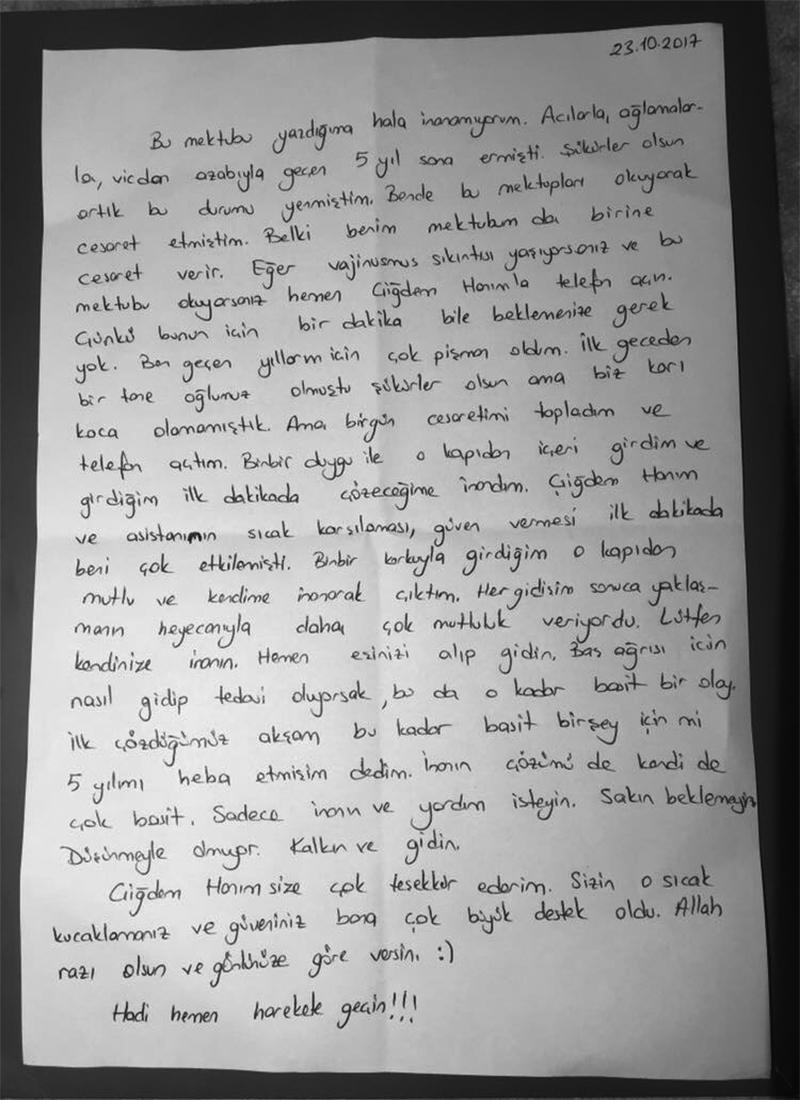 23.10.2017
Bu mektubu yazdığıma hala inanamıyorum. Acılarla, ağlamalar-
la, vicdan azabıyla geçen 5 yıl sona ermişti. Şükürler olsun
artık bu durumu yenmiştim. Bende bu mektupları okuyarak
cesaret etmiştim. Belki benim mektubum da birine
cesaret verir. Eğer vajinusmus sıkıntısı yaşıyorsanız ve bu
mektubu okuyorsanız hemen Çiğdem Hanım'la telefon açın.
Çünkü bunun için bir dakika bile beklemenize gerek
yok. Ben geçen yıllarım için çok pişman oldum. İlk geceden
bir tane oğlumuz olmuştu şükürler olsun ama biz karı
koca olamamıştık. Ama birgün cesaretimi topladım ve
telefon açtım. Binbir duygu ile o kapıdan içeri girdim ve
girdiğim ilk dakikada çözeceğime inandım. Çiğdem Hanım
ve asistanının sıcak karşılaması, güven vermesi ilk dakikada
beni çok etkilemişti. Binbir korkuyla girdiğim o kapıdan
mutlu ve kendime inanarak çıktım. Her gidişim sonuca yaklaş-
manın heyecanıyla daha çok mutluluk veriyordu. Lütfen
kendinize inanın. Hemen eşinizi alıp gidin. Baş ağrısı için
nasıl gidip tedavi oluyorsak, bu da o kadar basit bir olay.
İlk çözdüğümüz akşam bu kadar basit birşey için mi
5 yılımı heba etmişim dedim. İnanın çözümü de kendi de
çok basit. Sadece inanın ve yardım isteyin. Sakın beklemeyin
Düşünmeyle olmuyor. Kalkın ve gidin.
Çiğdem Hanım size çok teşekkür ederim. Sizin o sıcak
kucaklamanız ve güveniniz bana çok büyük destek oldu. Allah
razı olsun ve gönlünüze göre versin. :)
Hadi hemen harekete geçin!!!